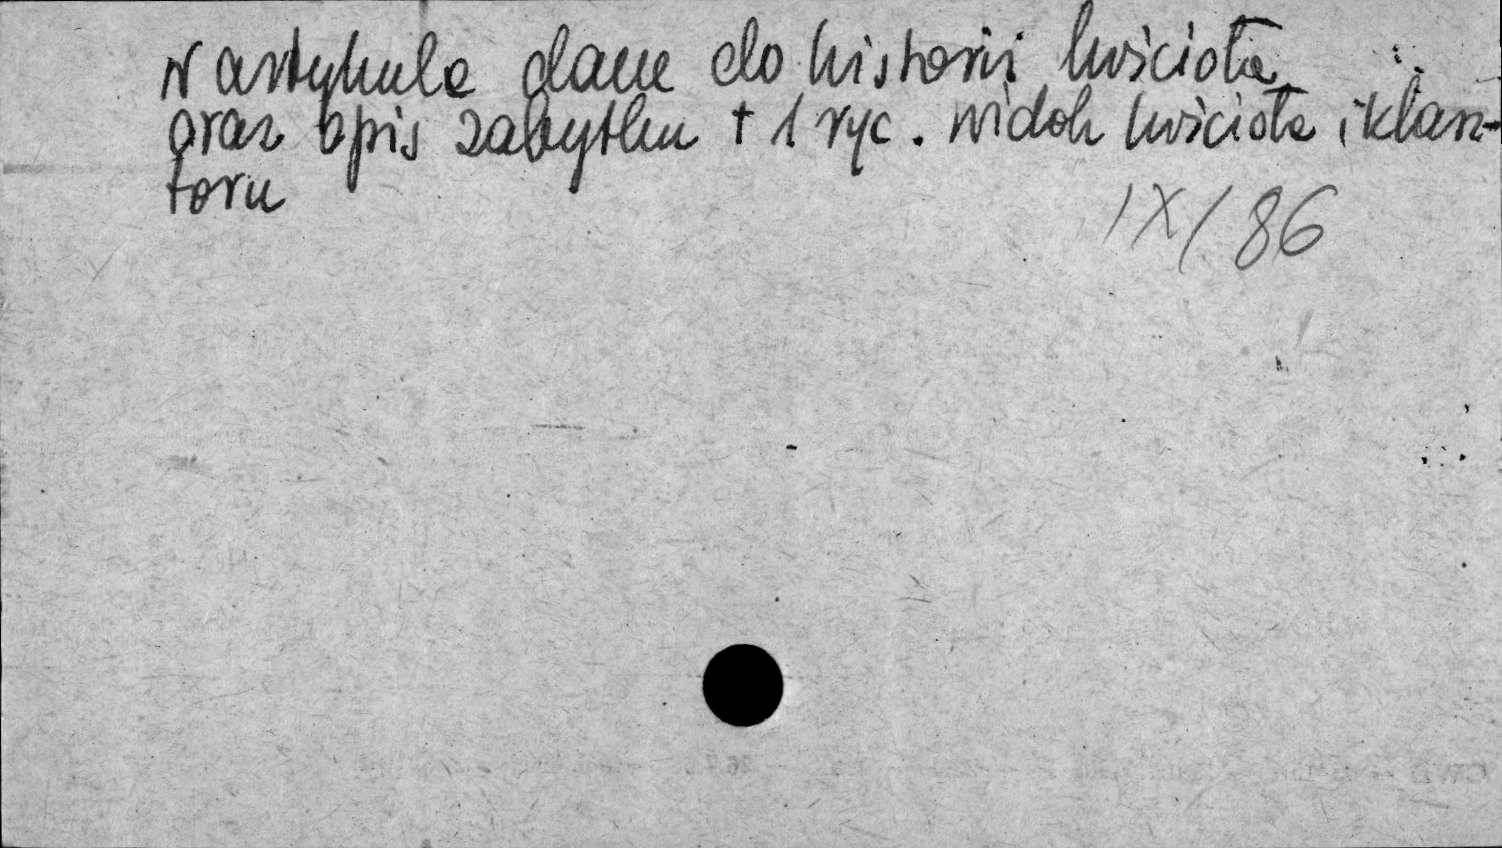 W artykule dane do historii kościoła
oraz opis zabytku + 1 ryc. widok kościoła i klasz-
toru
IX/86